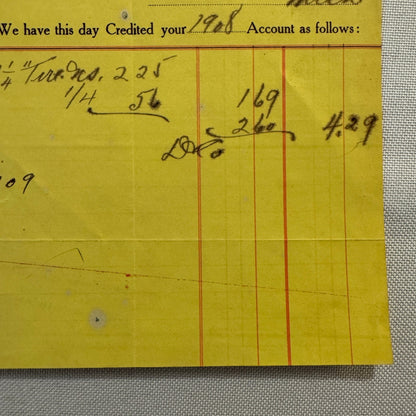 We have this day Credited your 1908 Account as follows:
1/4" Tire. Ins. 2 25
1/4 56 169
260 4.29
Do
09